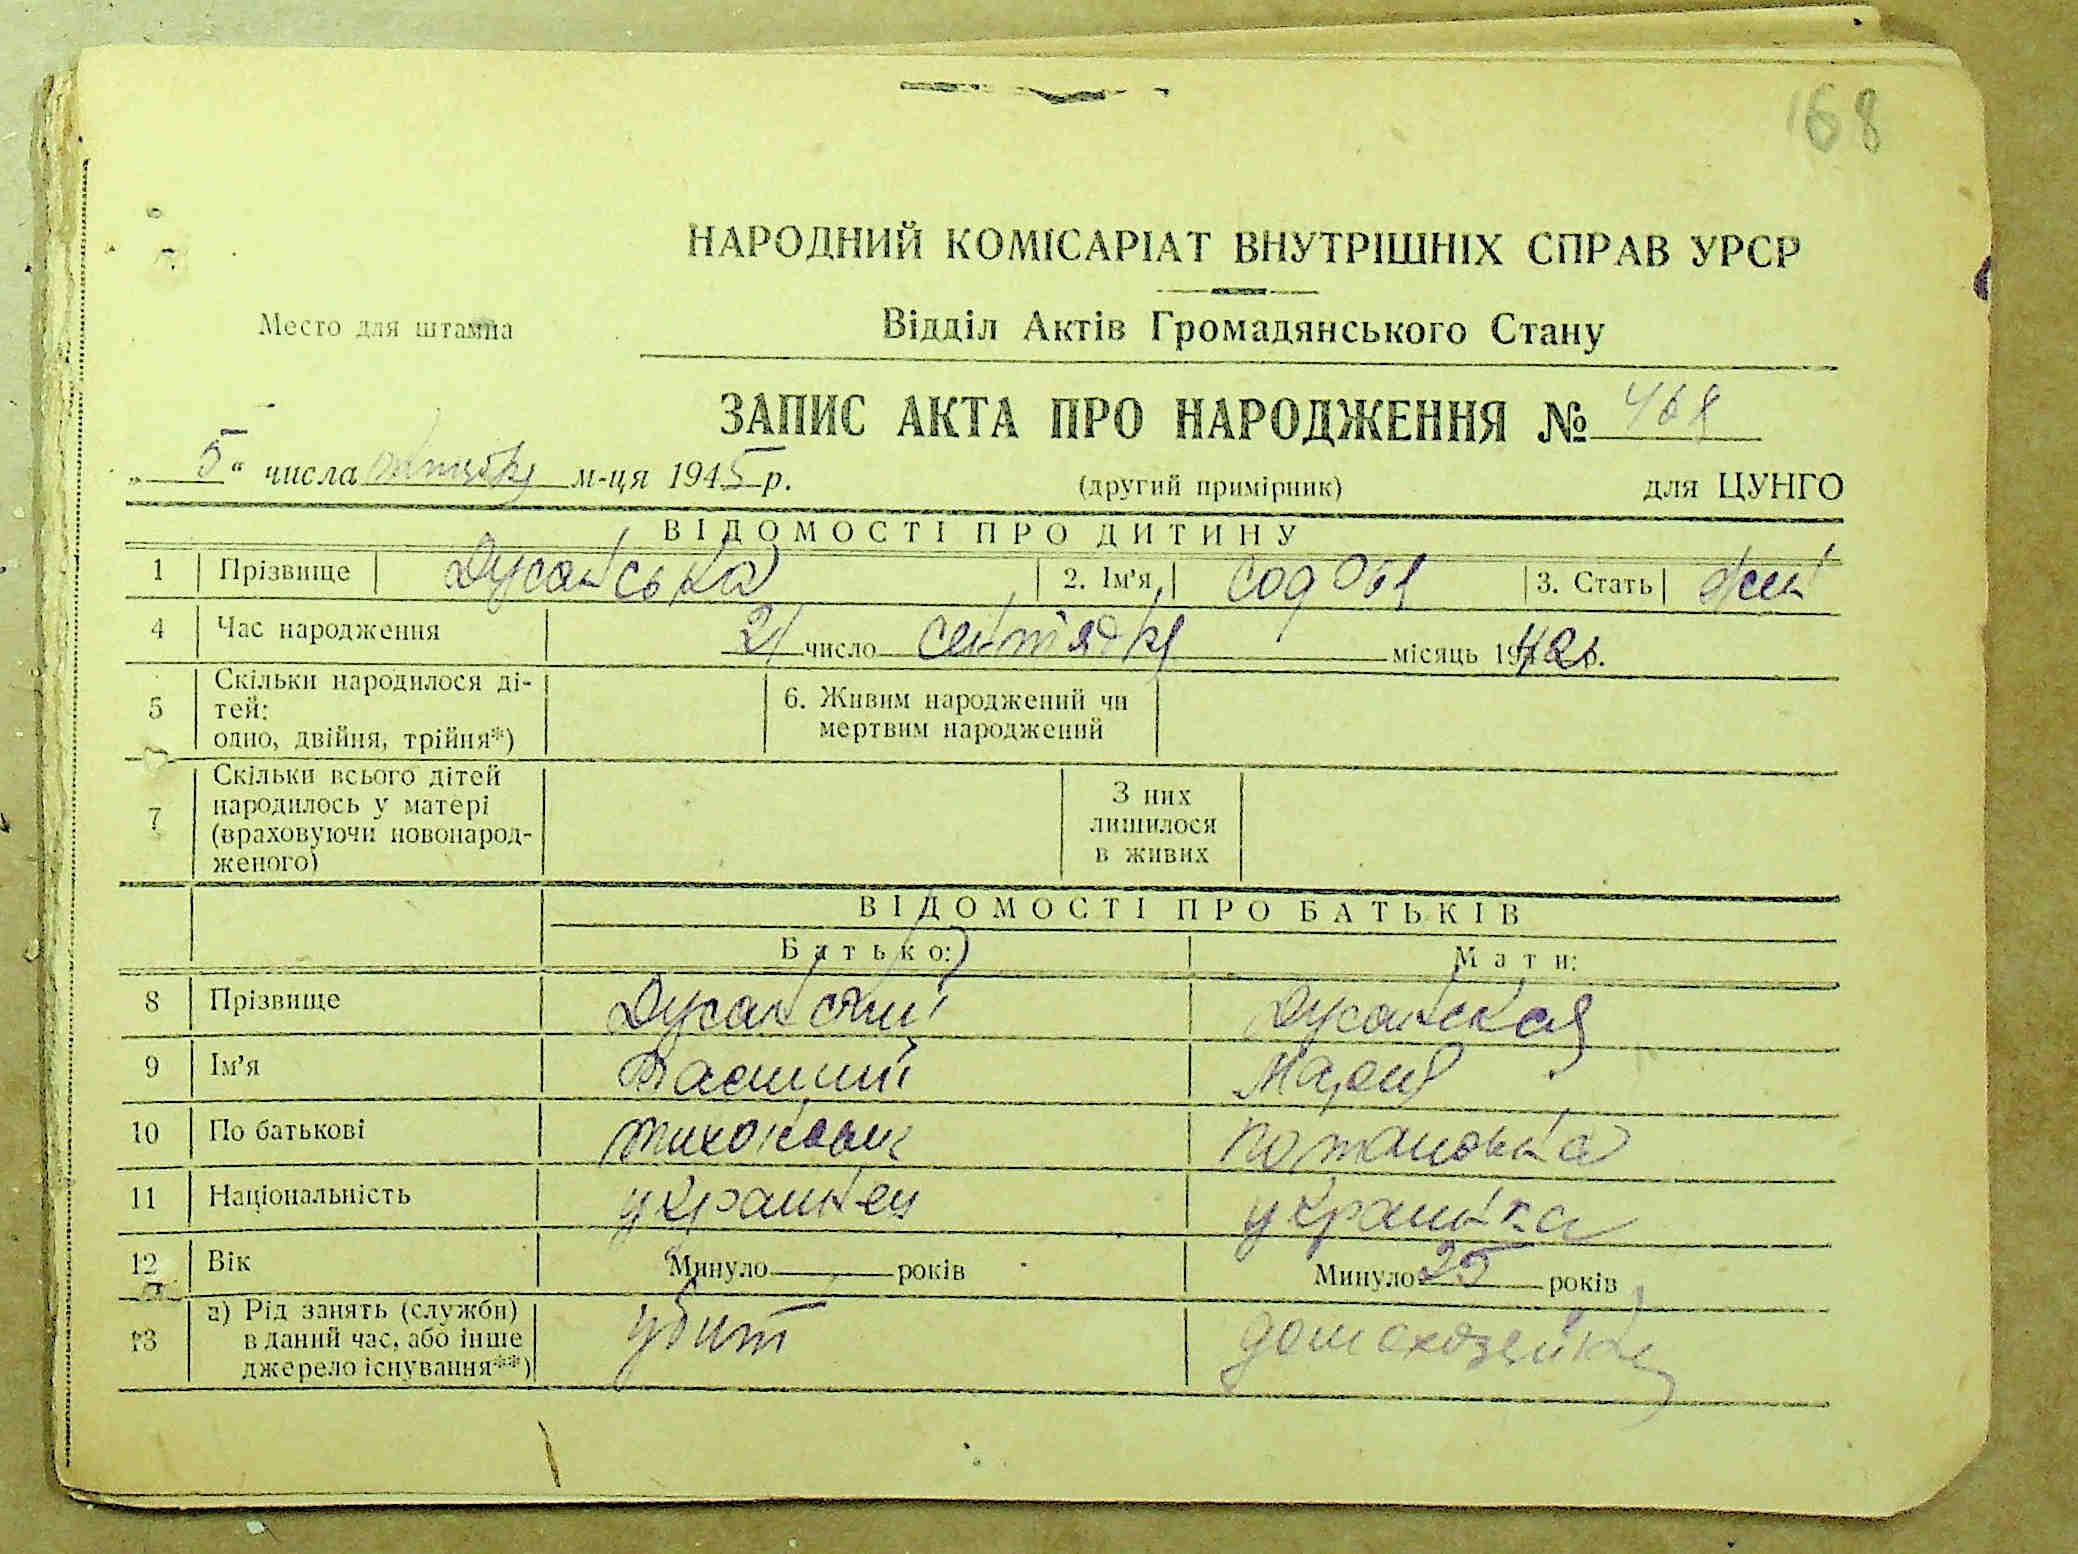 168
НАРОДНИЙ КОМІСАРІАТ ВНУТРІШНІХ СПРАВ УРСР
Место для штампа
Відділ Актів Громадянського Стану
ЗАПИС АКТА ПРО НАРОДЖЕННЯ № 468
„5“ числа октября м-ця 1945 р.
(другий примірник)
для ЦУНГО
ВІДОМОСТІ ПРО ДИТИНУ
1 Прізвище Дусанська 2. Ім'я 3. Стать жен
4 Час народження 21 число сентября місяць 1942 р.
5 Скільки народилося ді-
тей:
одно, двійня, трійня*)
6. Живим народжений чи
мертвим народжений
7 Скільки всього дітей
народилось у матері
(враховуючи новонарод-
женого)
З них
лишилося
в живих
ВІДОМОСТІ ПРО БАТЬКІВ
Батько: Мати:
8 Прізвище Дусанский Дусанская
9 Ім'я Василий Мария
10 По батькові Тихонович Потаповна
11 Національність украинец украинка
12 Вік Минуло років Минуло 25 років
13 а) Рід занять (служби)
в даний час, або інше
джерело існування**)
убит домохозяйка